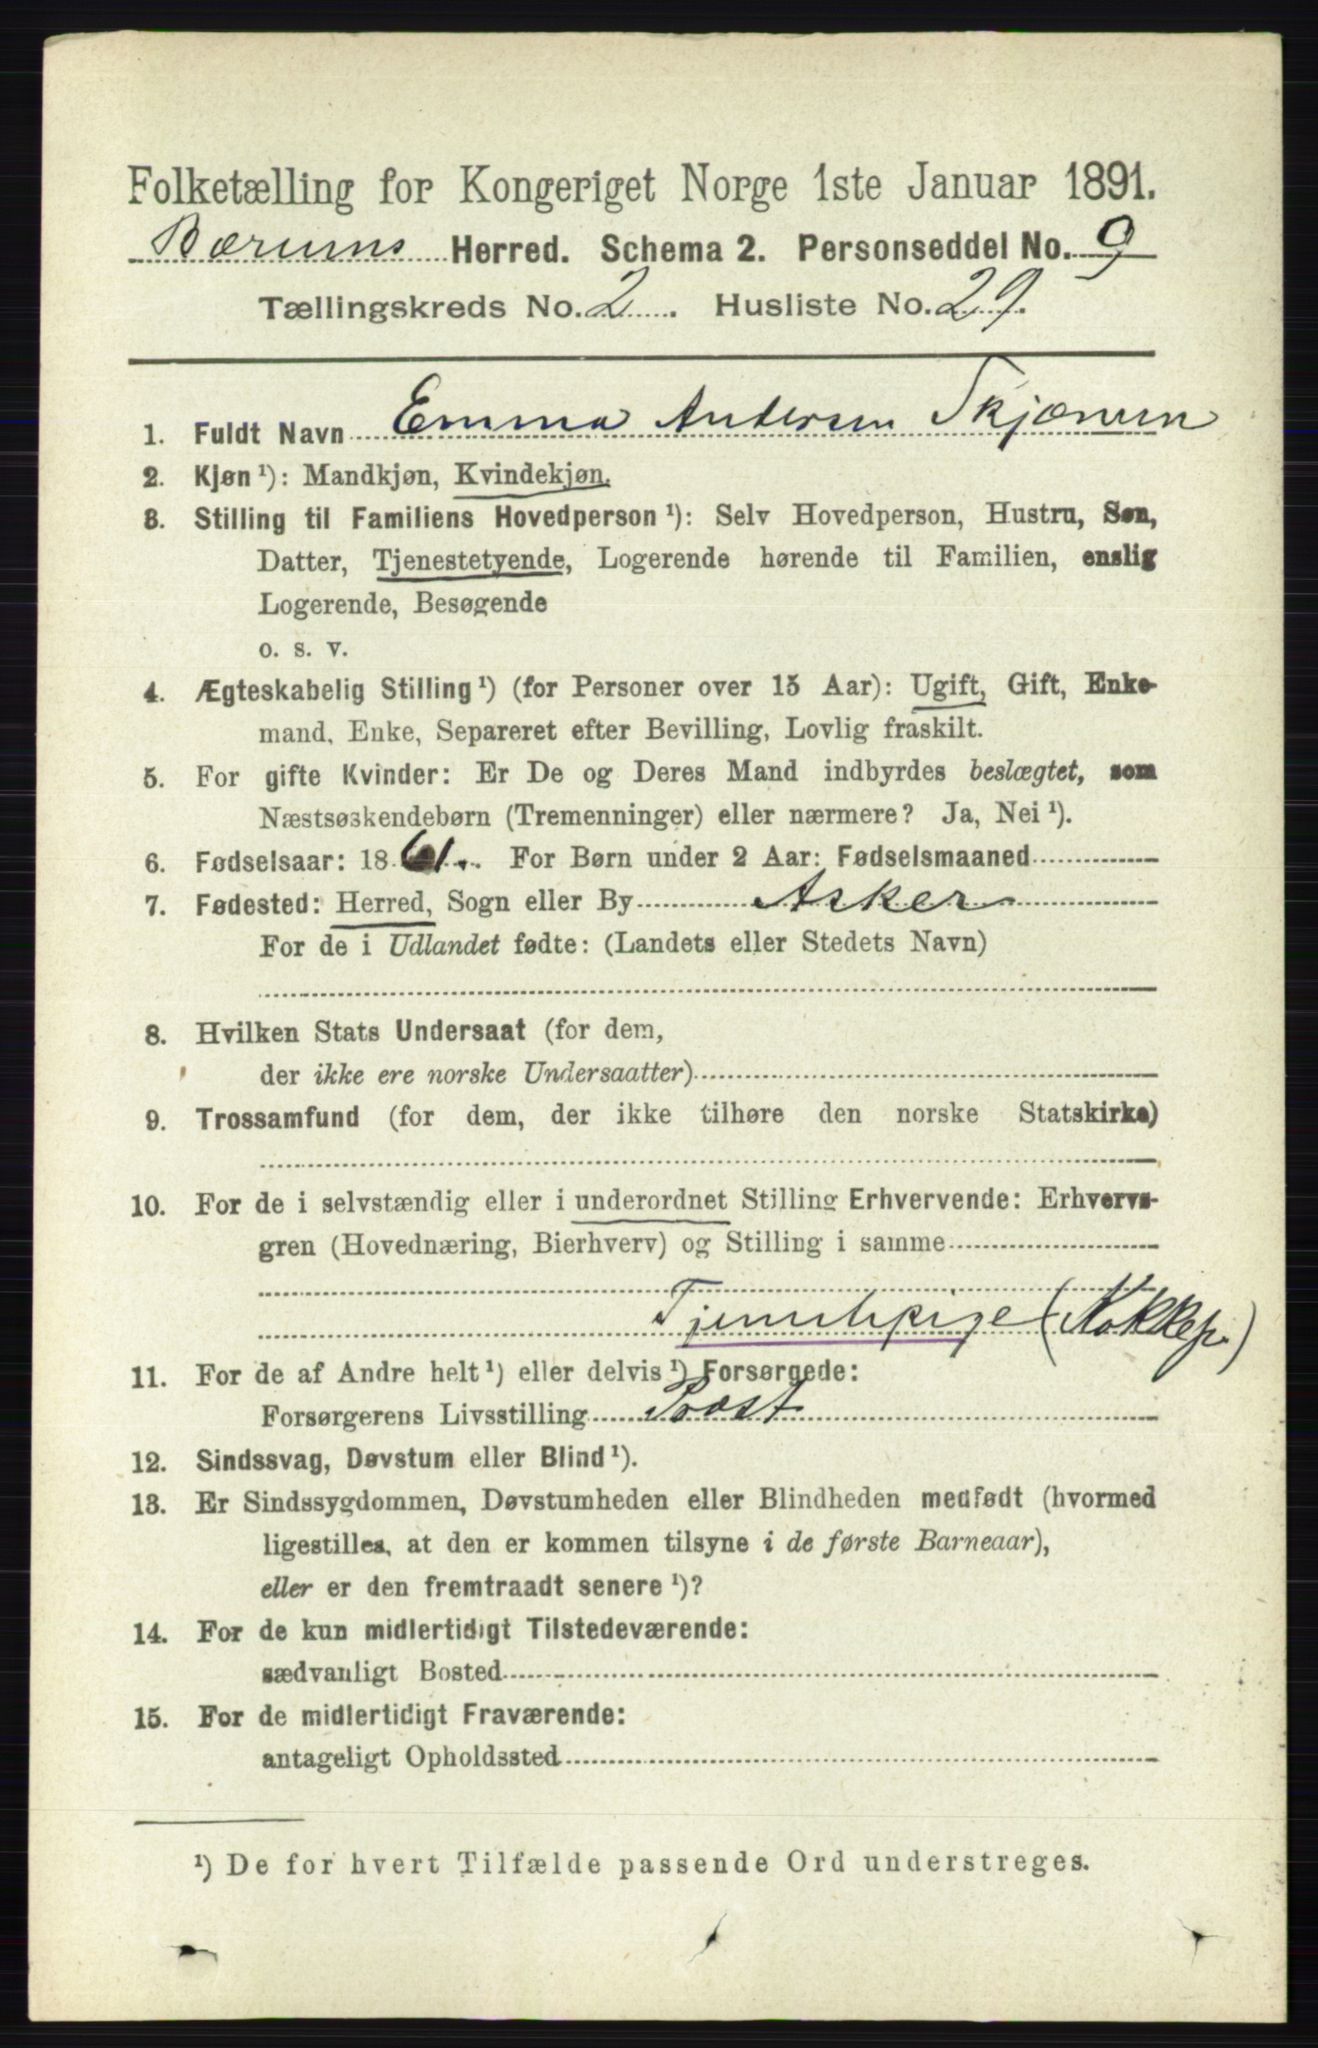 Folketælling for Kongeriget Norge 1ste Januar 1891.
Bærums Herred. Schema 2. Personseddel No. 9
Tællingskreds No. 2. Husliste No. 29.
1. Fuldt Navn Emma Andersen
2. Kjøn ¹): Mandkjøn, Kvindekjøn.
3. Stilling til Familiens Hovedperson ¹): Selv Hovedperson, Hustru, Søn,
Datter, Tjenestetyende, Logerende hørende til Familien, enslig
Logerende, Besøgende
o. s. v.
4. Ægteskabelig Stilling ¹) (for Personer over 15 Aar): Ugift, Gift, Enke-
mand, Enke, Separeret efter Bevilling, Lovlig fraskilt.
5. For gifte Kvinder: Er De og Deres Mand indbyrdes beslægtet, som
Næstsøskendebørn (Tremenninger) eller nærmere? Ja, Nei ¹).
6. Fødselsaar: 1861. For Børn under 2 Aar: Fødselsmaaned
7. Fødested: Herred, Sogn eller By Asker
For de i Udlandet fødte: (Landets eller Stedets Navn)
8. Hvilken Stats Undersaat (for dem,
der ikke ere norske Undersaatter)
9. Trossamfund (for dem, der ikke tilhøre den norske Statskirke)
10. For de i selvstændig eller i underordnet Stilling Erhvervende: Erhvervs-
gren (Hovednæring, Bierhverv) og Stilling i samme
Tjenestepige (Kokkep.)
11. For de af Andre helt ¹) eller delvis ¹) Forsørgede:
Forsørgerens Livsstilling Provst
12. Sindssvag, Døvstum eller Blind ¹).
13. Er Sindssygdommen, Døvstumheden eller Blindheden medfødt (hvormed
ligestilles, at den er kommen tilsyne i de første Barneaar),
eller er den fremtraadt senere ¹)?
14. For de kun midlertidigt Tilstedeværende:
sædvanligt Bosted
15. For de midlertidigt Fraværende:
antageligt Opholdssted
¹) De for hvert Tilfælde passende Ord understreges.